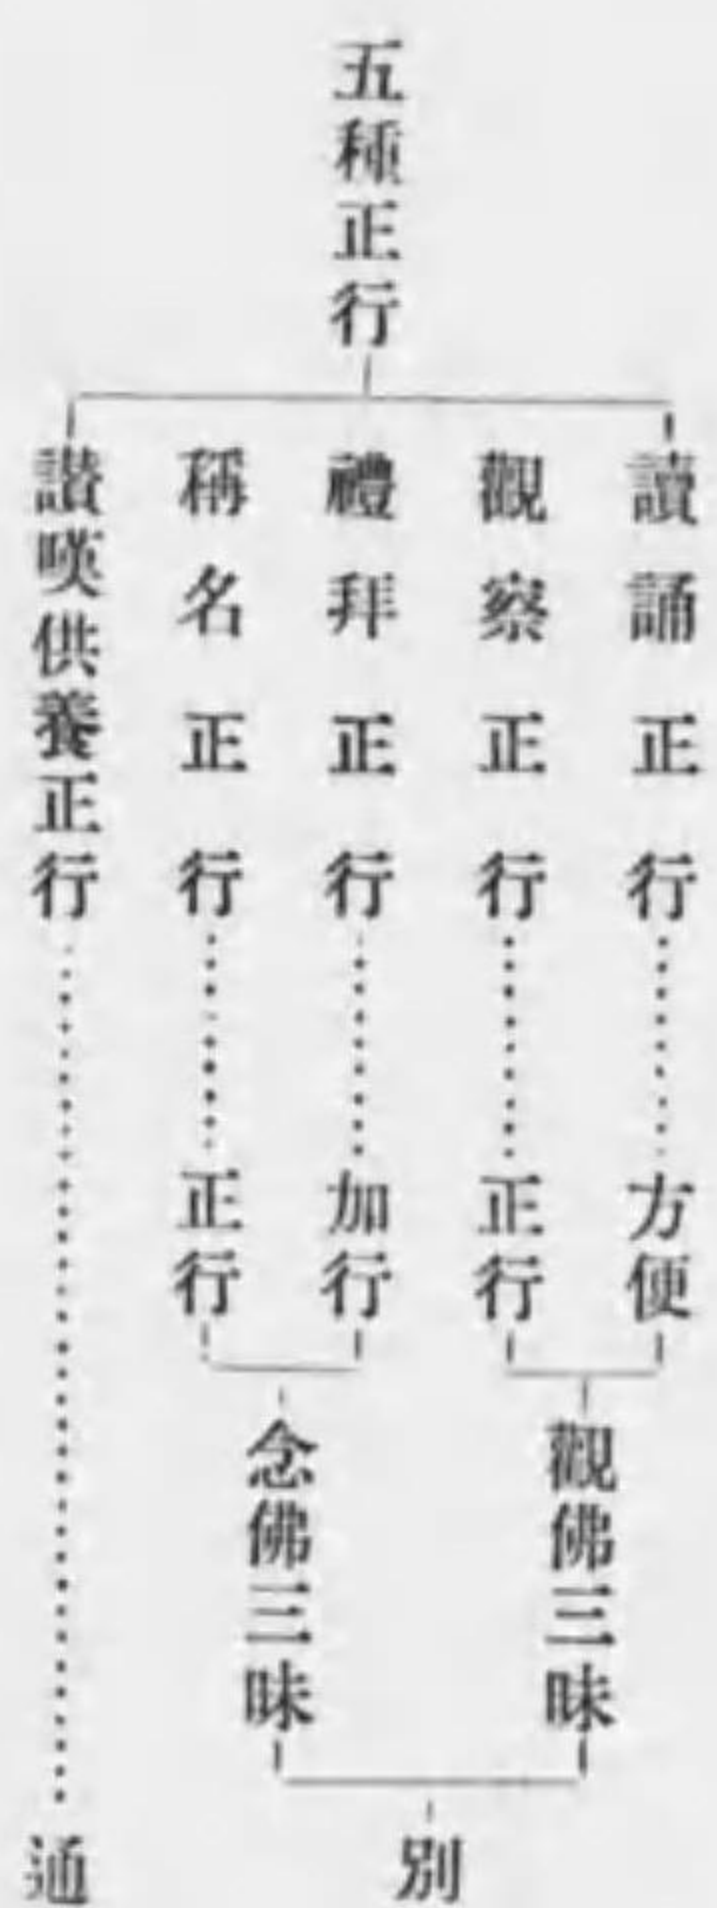 五種正行
讀誦正行……方便
觀察正行……正行
觀佛三昧
禮拜正行……加行
稱名正行……正行
念佛三昧
別
讃嘆供養正行……通